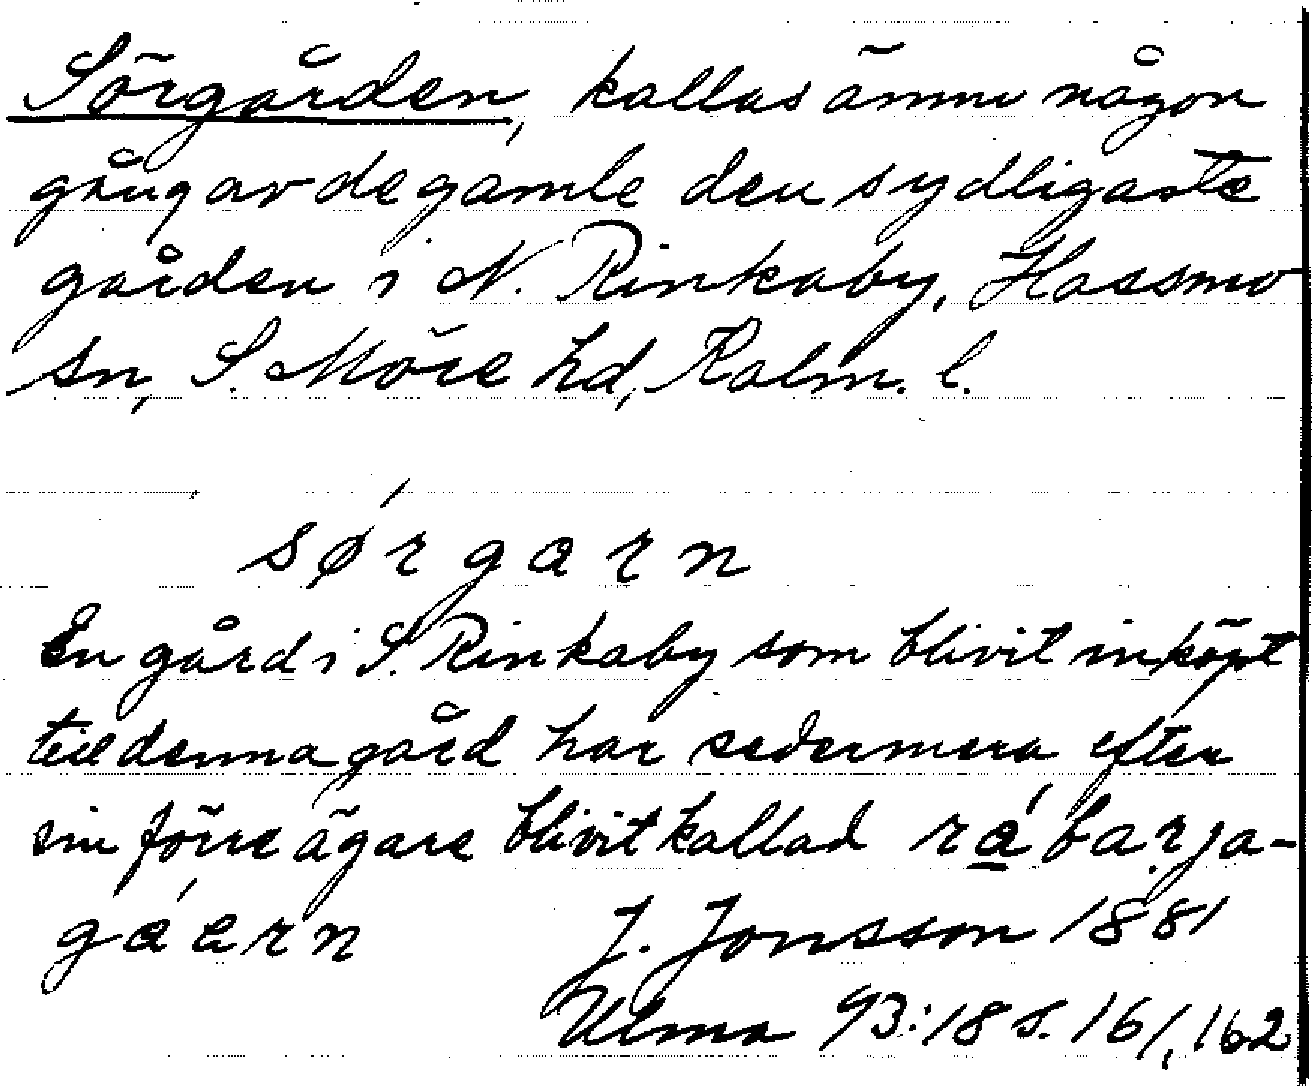 Sörgården, kallas ännu någon
gång av de gamle den sydligaste
gården i N. Rinkaby, Hossmo
sn, S. Möre hd, Kalm. l.
sǿrgarn
En gård i S. Rinkaby som blivit inköpt
till denna gård har sedermera efter
sin förre ägare blivit kallad rábarja-
gáern
J. Jonsson 1881
Ulma 93:18 s. 161, 162